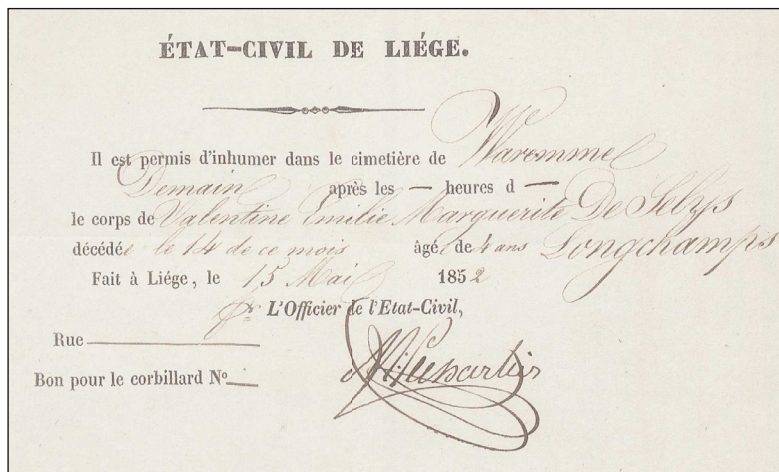 ÉTAT-CIVIL DE LIÉGE.
Il est permis d'inhumer dans le cimetière de Waremme
Demain après les — heures d —
le corps de Valentine Emilie Marguerite De Selys
décédée le 14 de ce mois âgé de 4 ans Longchamps
Fait à Liége, le 15 Mai 1852
Pr L'Officier de l'Etat-Civil,
Rue
Bon pour le corbillard No